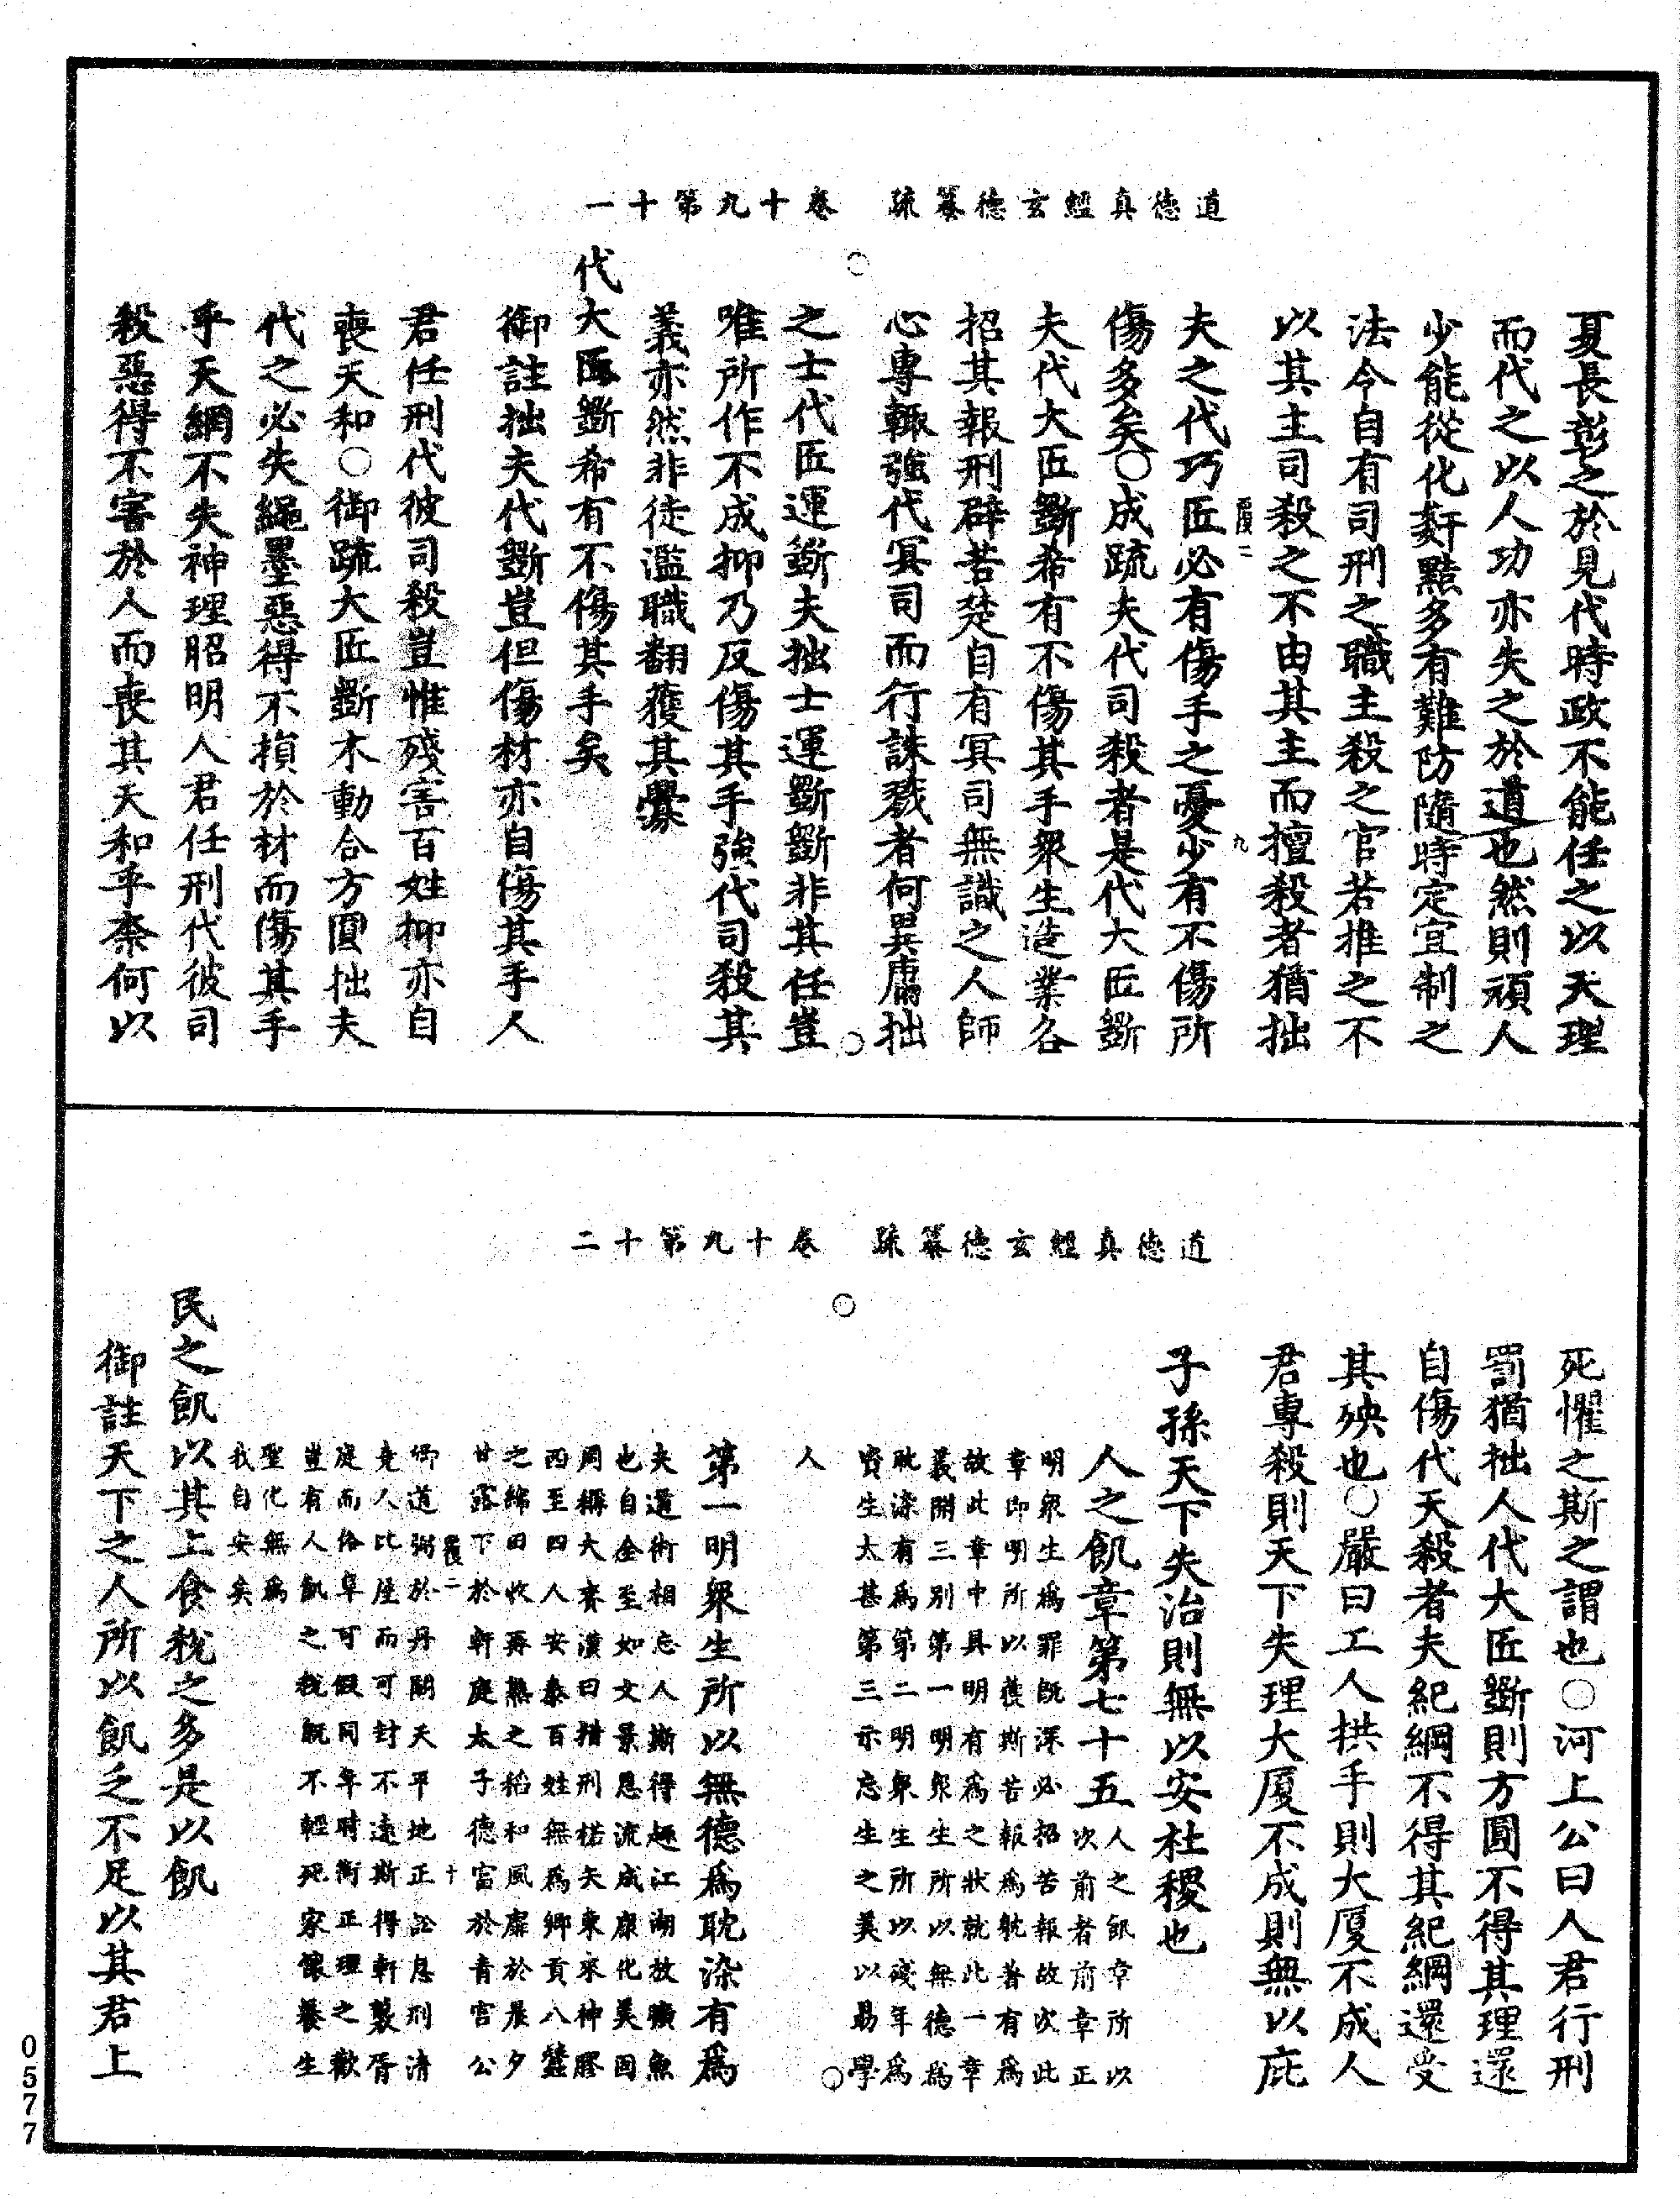 道德真經玄德纂疏 卷十九第十一
夏長彰之於見代時政不能任之以天理
而代之以人功亦失之於道也然則頑人
少能從化姧黠多有難防隨時定宜制之
法令自有司刑之職主殺之官若推之不
以其主司殺之不由其主而擅殺者猶拙
夫之代巧匠必有傷手之憂少有不傷所
傷多矣○成疏夫代司殺者是代大匠斵
夫代大匠斵希有不傷其手衆生造業各
招其報刑辟苦楚自有冥司無識之人師
心專輒強代冥司而行誅戮者何異庸拙
之士代匠運斵夫拙士運斵斵非其任豈
唯所作不成抑乃反傷其手強代司殺其
義亦然非徒濫職翻獲其釁
代大匠斵希有不傷其手矣
御註拙夫代斵豈但傷材亦自傷其手人
君任刑代彼司殺豈惟殘害百姓抑亦自
喪天和○御疏大匠斵木動合方圓拙夫
代之必失繩墨惡得不損於材而傷其手
乎天網不失神理昭明人君任刑代彼司
殺惡得不害於人而喪其天和乎柰何以
道德真經玄德纂疏 卷十九第十二
死懼之斯之謂也○河上公曰人君行刑
罰猶拙人代大匠斵則方圓不得其理還
自傷代天殺者夫紀綱不得其紀綱還受
其殃也○嚴曰工人拱手則大厦不成人
君專殺則天下失理大厦不成則無以庇
子孫天下失治則無以安社稷也
人之飢章第七十五
人之飢章所以
次前者前章正
明衆生爲罪旣深必招苦報故次此
章即明所以獲斯苦報爲躭著有爲
故此章中具明有爲之狀就此一章
義開三別第一明衆生所以無德爲
耽染有爲第二明衆生所以殘年爲
貴生太甚第三示忘生之美以勗學
人
第一明衆生所以無德爲耽染有爲
夫還術相忘人斯得趣江湖放曠魚
也自全至如文景恩流成康化美固
周稱大賚漢曰措刑楛矢東來神膠
西至四人安泰百姓無爲鄉貢八蠶
之綿田收再熟之稻和風扇於晨夕
甘露下於軒庭太子德富於青宮公
卿道弼於丹闕天平地正訟息刑清
堯人比屋而可封不遠斯得軒製胥
庭而俗阜可假同年時衡正理之歡
豈有人飢之稅旣不輕死家懷養生
聖化無爲
我自安矣
民之飢以其上食稅之多是以飢
御註天下之人所以飢乏不足以其君上
0577